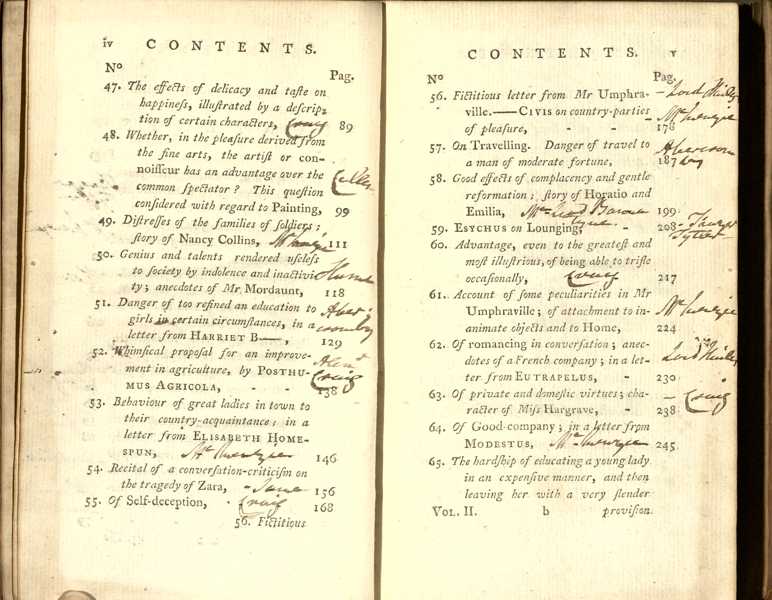 iv CONTENTS.
No Pag.
47. The effects of delicacy and taſte on
happineſs, illuſtrated by a deſcrip-
tion of certain characters, Craig 89
48. Whether, in the pleaſure derived from
the fine arts, the artiſt or con-
noiſſeur has an advantage over the
common ſpectator? This queſtion
conſidered with regard to Painting, 99
49. Diſtreſſes of the families of ſoldiers;
ſtory of Nancy Collins, 111
50. Genius and talents rendered uſeleſs
to ſociety by indolence and inactivi-
ty; anecdotes of Mr Mordaunt, Hume 118
51. Danger of too refined an education to
girls in certain circumſtances, in a
letter from HARRIET B——, 129
52. Whimſical propoſal for an improve-
ment in agriculture, by POSTHU-
MUS AGRICOLA, - - Craig 138
53. Behaviour of great ladies in town to
their country-acquaintance; in a
letter from ELISABETH HOME-
SPUN, 146
54. Recital of a converſation-criticiſm on
the tragedy of Zara, - 156
55. Of Self-deception, - Craig 168
56. Fictitious
CONTENTS. v
No Pag.
56. Fictitious letter from Mr Umphra- Lord
ville.——CIVIS on country-parties
of pleaſure, - - 176
57. On Travelling. Danger of travel to
a man of moderate fortune, 187
58. Good effects of complacency and gentle
reformation; ſtory of Horatio and
Emilia, 199
59. ESYCHUS on Lounging, 208
60. Advantage, even to the greateſt and
moſt illuſtrious, of being able to trifle
occaſionally, Craig 217
61. Account of ſome peculiarities in Mr
Umphraville; of attachment to in-
animate objects and to Home, 224
62. Of romancing in converſation; anec-
dotes of a French company; in a let- Lord
ter from EUTRAPELUS, - 230
63. Of private and domeſtic virtues; cha- Craig
racter of Miſs Hargrave, - 238
64. Of Good-company; in a letter from
MODESTUS, 245
65. The hardſhip of educating a young lady
in an expenſive manner, and then
leaving her with a very ſlender
VOL. II. b proviſion.